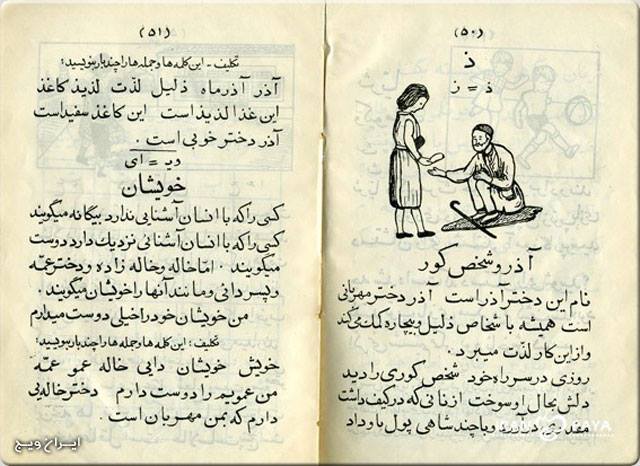 (۵۰)
ذ
ذ = ز
آذر و شخص کور
نام این دختر آذر است آذر دختر مهربانی
است همیشه با شخاص ذلیل و بیچاره کمک می کند
و از این کار لذت میبرد.
روزی در سر راه خود شخص کوری را دید
دلش بحال او سوخت از نانی که در کیف داشت
مقداری درآورد و با چند شاهی پول با و داد
(۵۱)
تکلیف - این کلمه ها و جمله ها را چند بار بنویسید؛
آذر آذر ماه ذلیل لذت لذیذ کاغذ
این غذا لذیذ است این کاغذ سفید است
آذر دختر خوبی است .
= ای
خویشان
کسی را که با انسان آشنایی ندارد بیگانه میگویند
کسی را که با انسان آشنائی نزدیک دارد دوست
میگویند . امّا خاله و خاله زاده و دختر عمّه
و پسر دائی و مانند آنها را خویشان میگویند.
من خویشان خود را خیلی دوست میدارم
تکلیف؛ این کلمه ها و جمله ها را چند بار بنویسید؛
خویش خویشان دایی خاله عمو عمّه
من عمویم را دوست دارم دختر خاله یی
دارم که بمن مهربان است.
ایران ویج